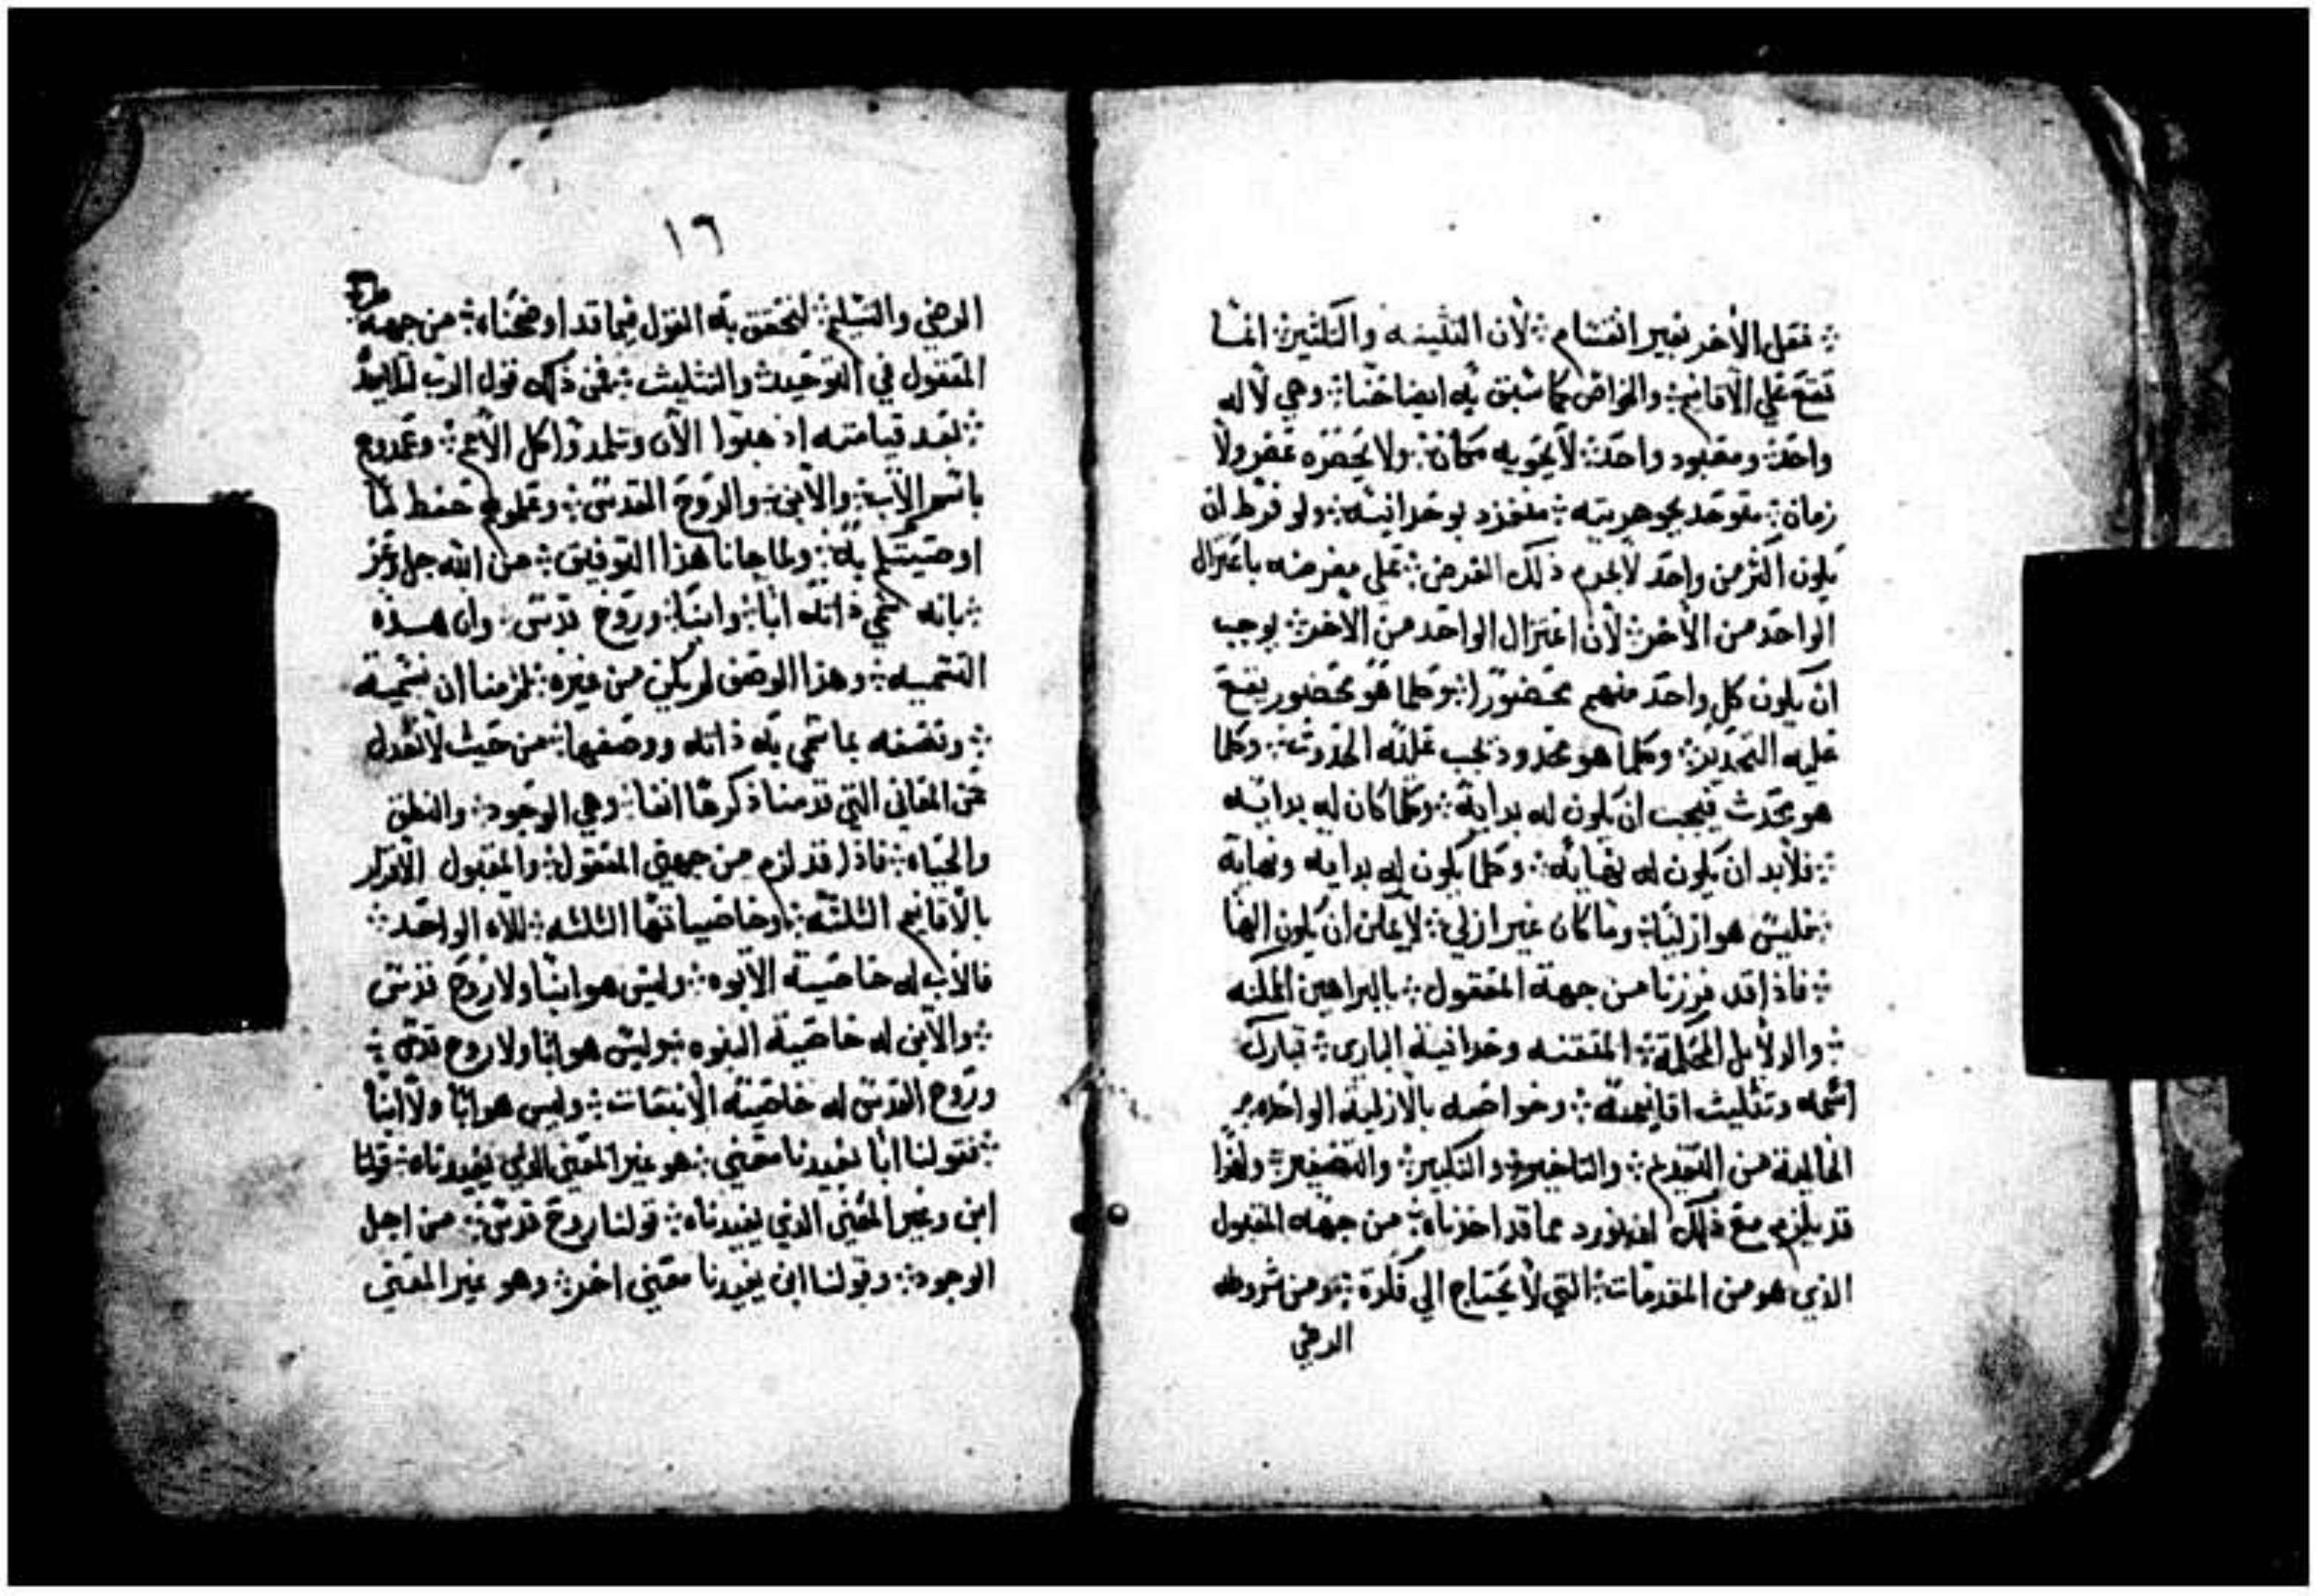 ؞ فعل الاخر بغير انقسام ؞ لان التثنيه والتكثير ؞ انما
تقع علي الاقانيم ؞ والخواص كما سبق به ايضاحنا ؞ وهي لاله
واحد ؞ ومعبود واحد ؞ لا يحويه مكان ؞ ولا يحصره عصر ولا
زمان ؞ متوحد بجوهريته ؞ منفرد بوحدانيته ؞ ولو فرط ان
يكون اكثر من واحد لا بجرم ذلك الفرض ؞ علي مفرضه باعتزال
الواحد من الاخر ؞ لان اعتزال الواحد من الاخر ؞ يوجب
ان يكون كل واحد منهم محصورا ؞ وكلما هو محصور يقع
عليه التحديد ؞ وكلما هو محدود تجب علته الحدوث ؞ وكلما
هو محدث فيجب ان يكون له بداية ؞ وكلما كان له بدايه
؞ فلابد ان يكون له نهايه ؞ وكلما يكون له بدايه ونهاية
؞ فليس هو ازليا ؞ وما كان غير ازلي ؞ لا يمكن ان يكون الها
؞ فاذا قد قررنا من جهة المعقول ؞ بالبراهين الممكنه
؞ والدلايل المحكمة ؞ المتقنه وحدانية الباري ؞ تبارك
اسمه وتثليث اقانيمه ؞ وخواصه بالازلية الواحده
الخالية من التقديم ؞ والتاخير ؞ والتكبير ؞ والتصغير ؞ ولهذا
قد يلزم مع ذلك ان نورد مما قد اخذناه ؞ من جهه المقبول
الذي هو من المقدمات ؞ التي لا يحتاج الي فكرة ؞ ومن شروطه
الرضي
١٦
الرضي والتسليم ؞ لتحقق به القول فيما قد اوضحناه ؞ من جهة
المعقول في التوحيد والتثليث ؞ فمن ذلك قول الرب لتلاميذه
؞ بعد قيامته اذهبوا الان وتلمذوا كل الامم ؞ وعمدوهم
باسم الاب ؞ والابن ؞ والروح القدس ؞ وعلموهم حفظ ما
اوصيتكم به ؞ ولما جانا هذا التوفيق ؞ من الله جل وعز
؞ بانه سمي ذاته ابا ؞ وابنا ؞ وروح قدس ؞ وان هذه
التسميه ؞ وهذا الوصف لم يكن من غيره ؞ لزمنا ان نسميه
؞ ونصفه بما سمي به ذاته ووصفها ؞ من حيث لا نعدل
عن المعاني التي قدمنا ذكرها انفا ؞ وهي الوجود ؞ والنطق
والحياه ؞ فاذا قد لزم من جهتي المعقول ؞ والمقبول الاقرار
بالاقانيم الثلثه ؞ وخاصياتها الثلثه ؞ للاه الواحد ؞
فالاب له خاصية الابوه ؞ وليس هو ابنا ولا روح قدس
؞ والابن له خاصية البنوه ؞ وليس هو ابا ولا روح قدس ؞
وروح القدس له خاصية الانبعات ؞ وليس هو ابا ولا ابنا
؞ فقولنا ابا يفيدنا معني ؞ هو غير المعني الذي يفيدناه ؞ قولنا
ابن وغير المعني الذي يفيدناه ؞ قولنا روح قدس ؞ من اجل
الوجود ؞ وقولنا ابن يفيدنا معني اخر ؞ وهو غير المعني